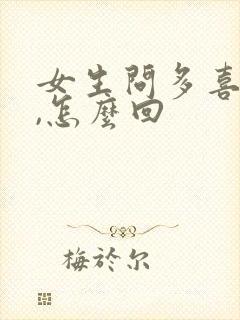 女生問多喜
,怎麼回
梅於尔